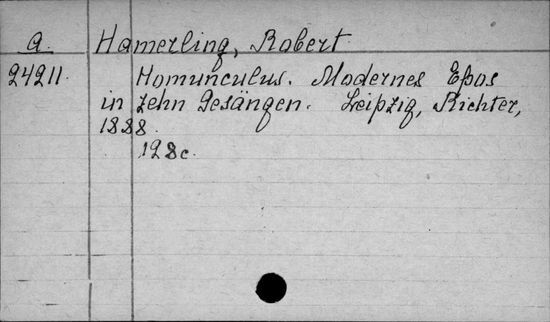 a. Hamerling, Robert
24211. Homunculus. Modernes Epos
in zehn Gesängen. Leipzig, Richter,
1888.
128c.